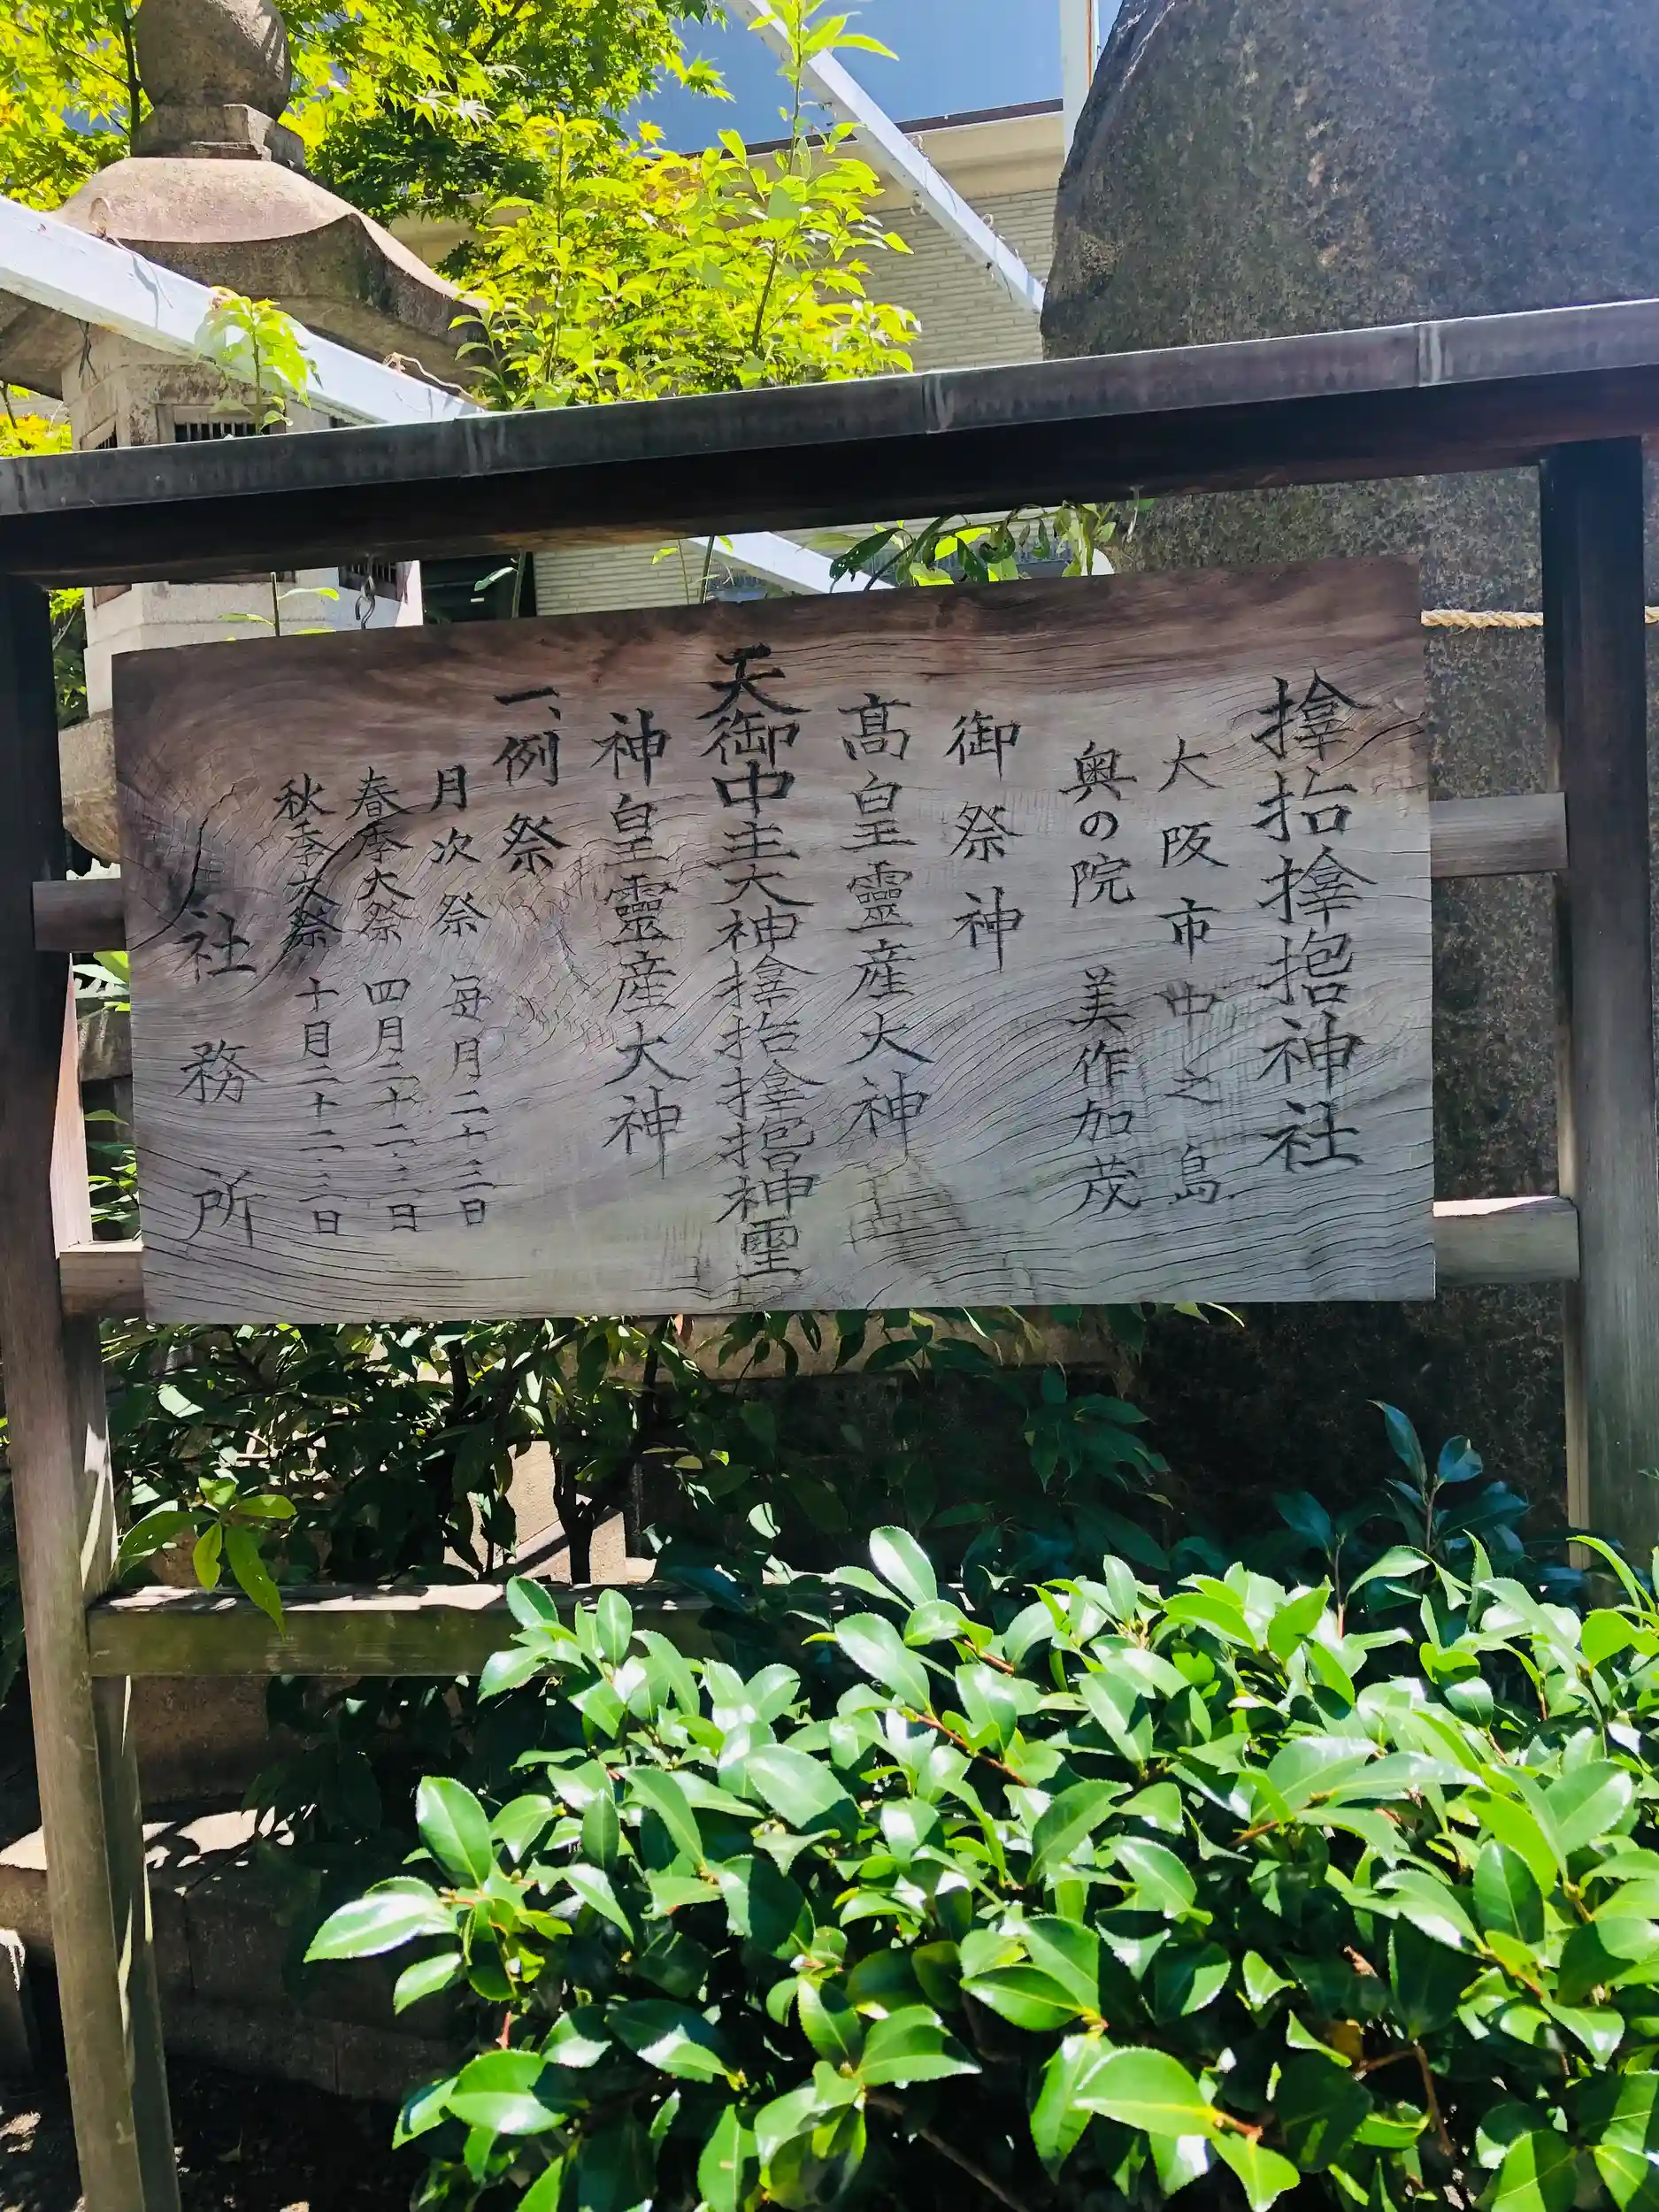 𪮷𫝼𪮷𫝹神社
大阪市中之島
奥の院 美作加茂
御祭神
髙皇靈産大神
天御中主大神𪮷𫝼𪮷𫝹神霊
神皇靈産大神
一、例祭
月次祭 毎月二十三日
春季大祭 四月二十二・三日
秋季大祭 十月二十二・三日
社務所